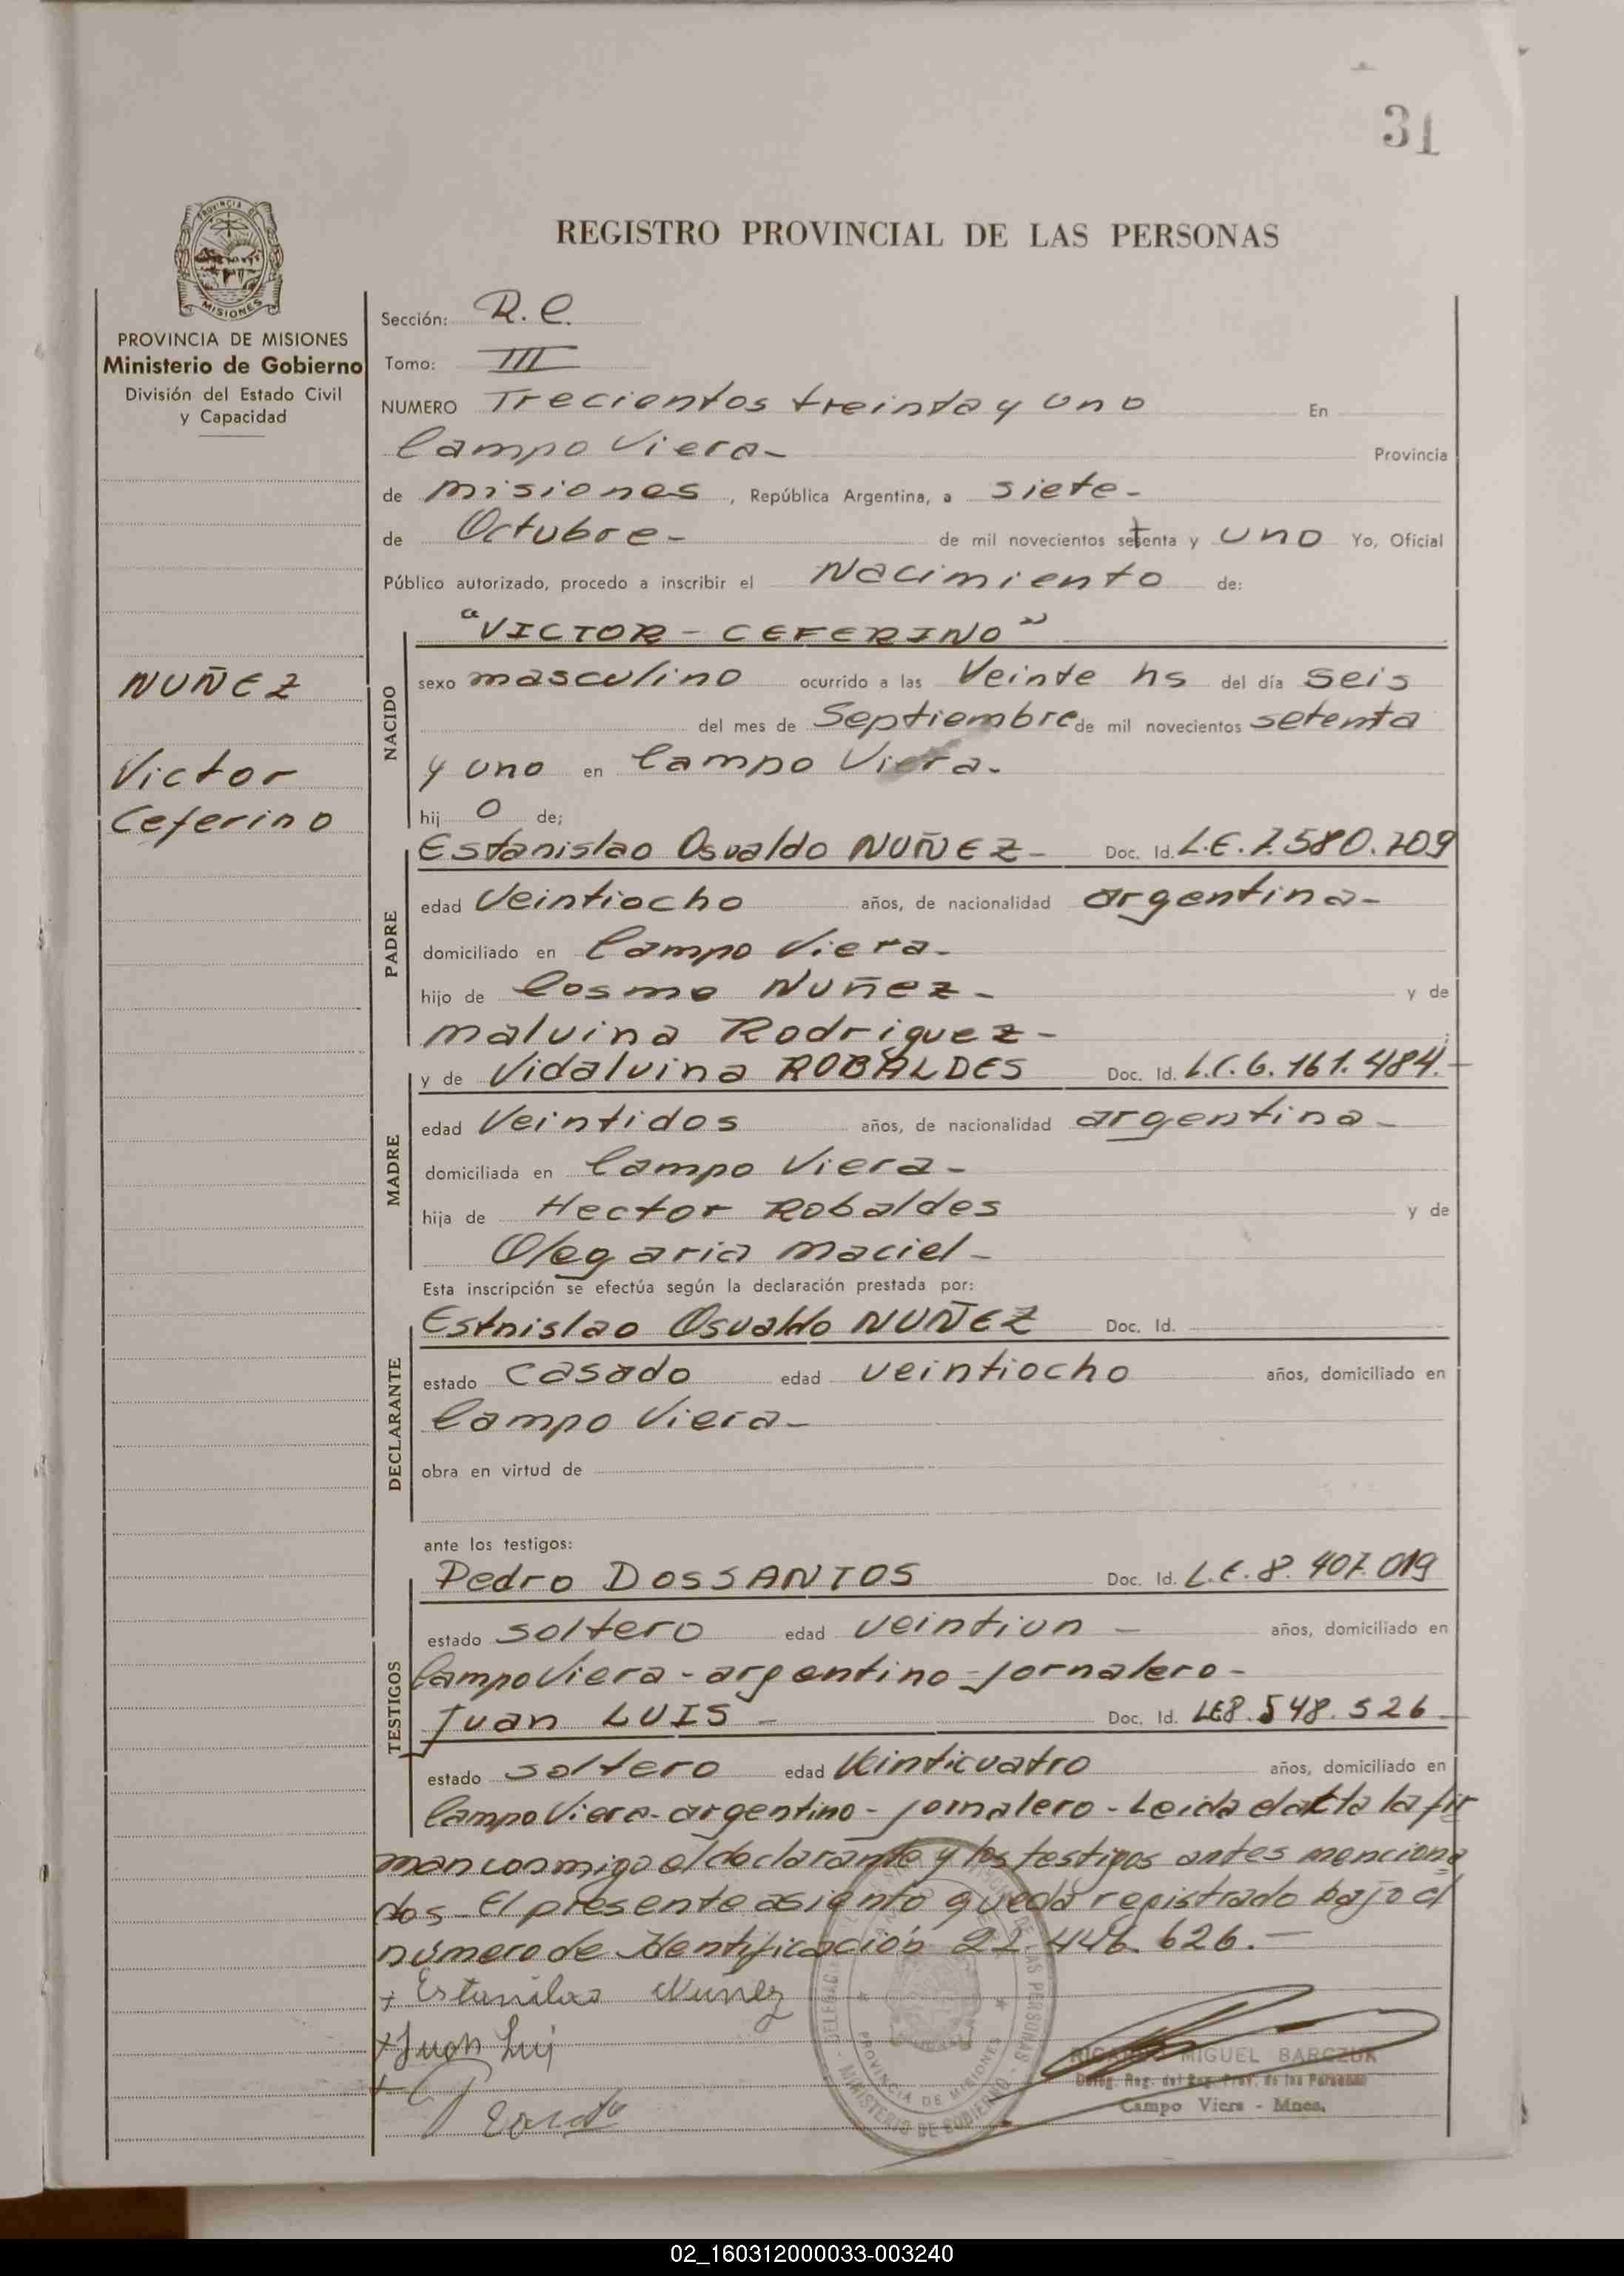 31
PROVINCIA DE
MISIONES
REGISTRO PROVINCIAL DE LAS PERSONAS
PROVINCIA DE MISIONES
Ministerio de Gobierno
División del Estado Civil
y Capacidad
NUÑEZ
Victor
Ceferino
Sección: R.C.
Tomo: III
NUMERO Trecientos treinta y uno En
Campo Viera-
Provincia
de misiones, República Argentina, a siete-
de Octubre- de mil novecientos setenta y uno Yo, Oficial
Público autorizado, procedo a inscribir el Nacimiento de:
NACIDO
"VICTOR - CEFERINO"
sexo masculino ocurrido a las Veinte hs del día seis
del mes de Septiembre de mil novecientos setenta
y uno en Campo Viera-
hij o de;
PADRE
Estanislao Osvaldo NUÑEZ- Doc. Id. L.E. 7.580.709
edad Veintiocho años, de nacionalidad argentina-
domiciliado en Campo Viera-
hijo de Cosme Nuñez- y de
malvina Rodriguez-
MADRE
y de Vidalvina ROBALDES Doc. Id. L.C. 6.161.484.-
edad Veintidos años, de nacionalidad argentina-
domiciliada en Campo Viera-
hija de Hector Robaldes y de
Olegaria Maciel-
Esta inscripción se efectúa según la declaración prestada por:
DECLARANTE
Estnislao Osvaldo NUÑEZ Doc. Id.
estado casado edad veintiocho años, domiciliado en
Campo Viera-
obra en virtud de
ante los testigos:
TESTIGOS
Pedro DOSSANTOS Doc. Id. L.E. 8.407.019
estado soltero edad veintiun - años, domiciliado en
Campo Viera - argentino - jornalero-
Juan LUIS - Doc. Id. LE8.548.526-
estado soltero edad Veinticuatro años, domiciliado en
Campo Viera - argentino - jornalero - Leida el acta la fir
man conmigo el declarante y los testigos antes menciona
dos- El presente asiento queda registrado bajo el
número de Identificación 22.446.626.-
+ Estanilao Nuñez
+ Juan Lui
RICARDO MIGUEL BARCZUK
Deleg. Reg. del Reg. Prov. de las Personas
Campo Viera - Mnes.
PROVINCIA DE MISIONES
MINISTERIO DE GOBIERNO
02_160312000033-003240